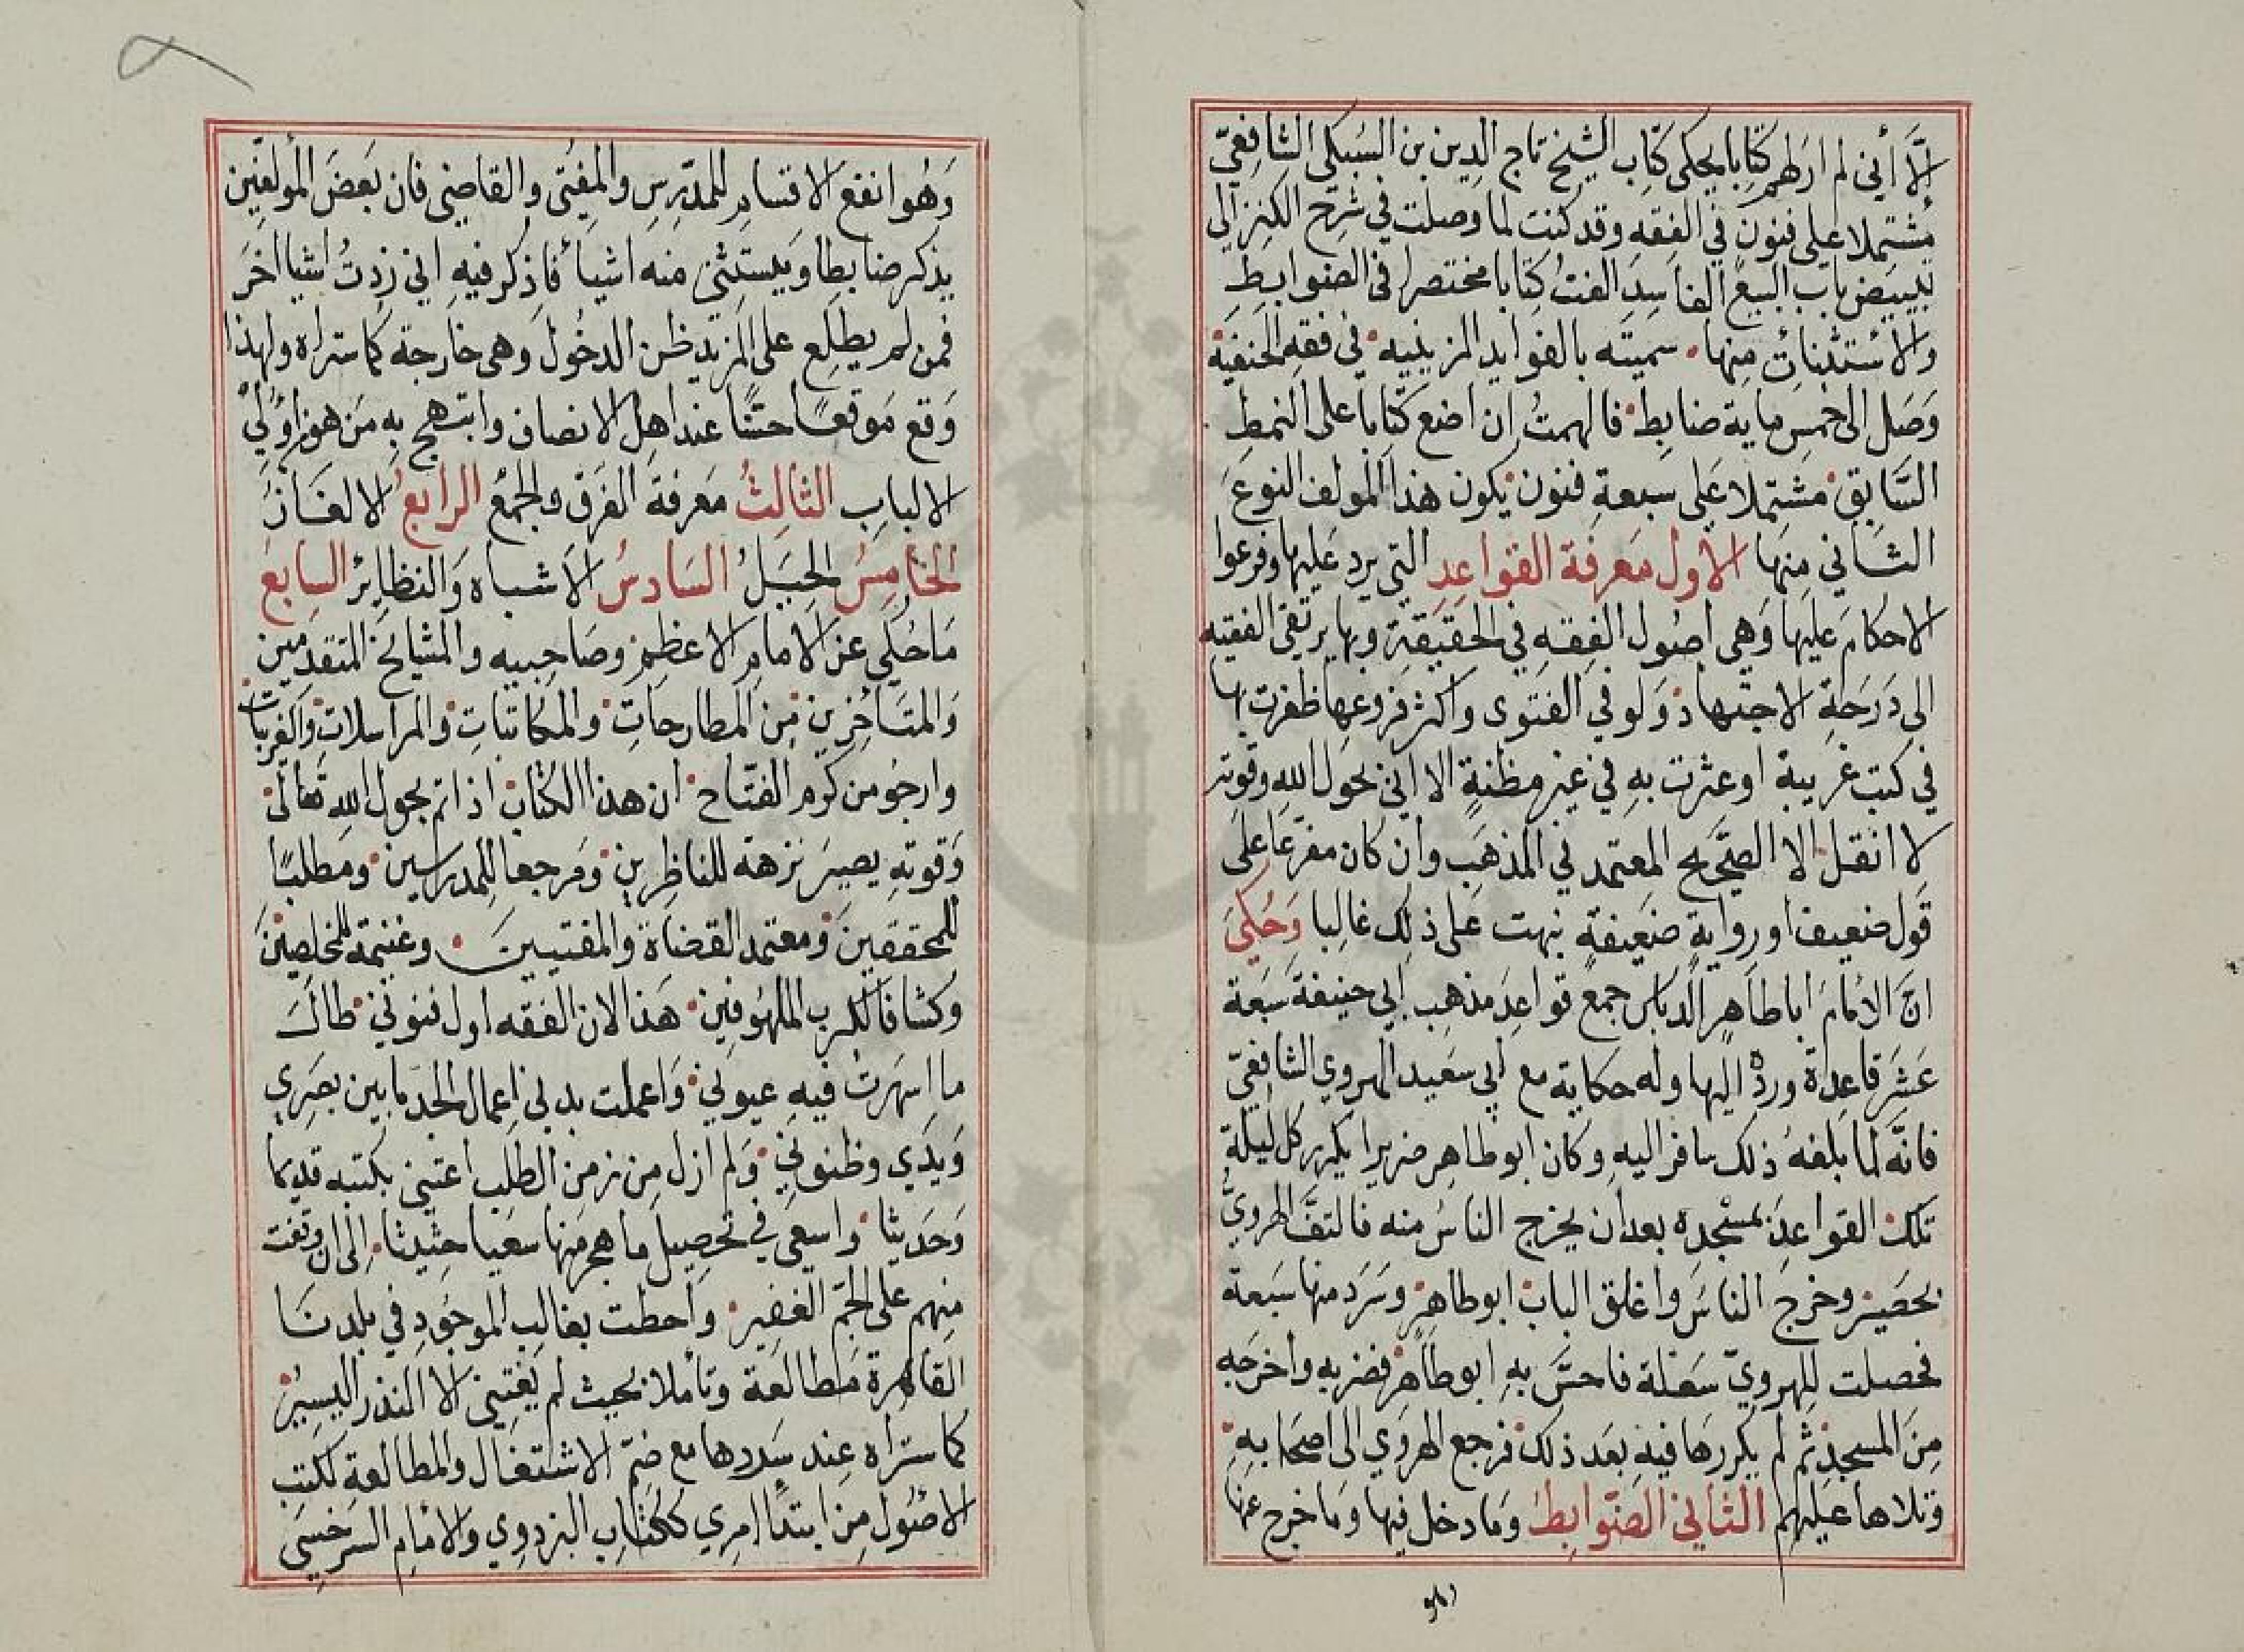 إلا أني لم ار لهم كتابا يحكى كتاب الشيخ تاج الدين بن السبكى الشافعي
مشتملا على فنون في الفقه وقد كنت لما وصلت في شرح الكنز إلى
تبييض باب البيع الفاسد الفت كتابا مختصرا فى الضوابط
والاستثنائت منها سميته بالفوايد الزينيه في فقه الحنفية
وصل الى خمس ماية ضابط فالهمت ان اضع كتابا على النمط
السابق مشتملا على سبعة فنون يكون هذا المولف النوع
الثاني منها الأول معرفة القواعد التي يرد عليها وفرعوا
الاحكام عليها وهي اصول الفقه في الحقيقة وبها يرتقى الفقيه
الى درجة الاجتهاد ولو في الفتوى واكثر فروعها ظفرت بها
في كتب غريبة او عثرت به في غير مظنة الا اني بحول الله وقوته
لا انقل الا الصحيح المعتمد في المذهب وان كان مفرعا على
قول ضعيف او رواية ضعيفة نبهت على ذلك غالبا وحكي
ان الامام ابا طاهر الدباس جمع قواعد مذهب ابي حنيفة سبعة
عشر قاعدة ورده اليها وله حكاية مع ابي سعيد الهروي الشافعي
فانه لما بلغه ذلك سافر اليه وكان ابو طاهر ضريرا يكرر كل ليلة
تلك القواعد بمسجده بعد ان يخرج الناس منه فالتف الهروي
بحصير وخرج الناس واغلق الباب ابو طاهر وسرد منها سبعة
فحصلت للهروي سعلة فاحس به ابو طاهر فضربه واخرجه
من المسجد ثم لم يكررها فيه بعد ذلك فرجع الهروي الى اصحابه
وتلاها عليهم الثاني الضوابط وما دخل فيها وما خرج عنها
وهو
وهو انفع الاقسام للمدرس والمفتى والقاضي فان بعض المولفين
يذكر ضابطا ويستثني منه اشيأ فاذكر فيه اني زدت اشيا اخر
فمن لم يطلع على المزيد ظن الدخول وهى خارجة كما ستراه ولهذا
وقع موقعا حسنا عند اهل الانصاف وابتهج به من هو من اولي
الالباب الثالث معرفة الفرق والجمع الرابع الالغاز
الخامس الحيل السادس الاشباه والنظاير السابع
ما حكي عن الامام الاعظم وصاحبيه والمشايخ المتقدمين
والمتأخرين من المطارحات والمكاتبات والمراسلات والغريبات
وارجو من كرم الفتاح ان هذا الكتاب اذا تم بحول الله تعالى
وقوته يصير نزهة للناظرين ومرجعا للمدرسين ومطلبا
للمحققين ومعتمد القضاة والمفتيين وغنيمة للمخلصين
وكشافا لكرب الملهوفين هذا لان الفقه اول فنوني طال
ما اسهرت فيه عيوني واعملت بدني اعمال الجد ما بين بصري
ويدي وظنوني ولم ازل من زمن الطلب اعتني بكتبه قديما
وحديثا واسعى في تحصيل ما هجر منها سعيا حثيثا الى ان وقفت
منهم على الجم الغفير واحطت بغالب الموجود في بلدنا
القاهرة مطالعة وتأملا بحيث لم يفتني الا النذر اليسير
كما ستراه عند سردها مع ضم الاشتغال والمطالعة لكتب
الاصول من ابتدا امري ككتاب البزدوي والامام السرخسي